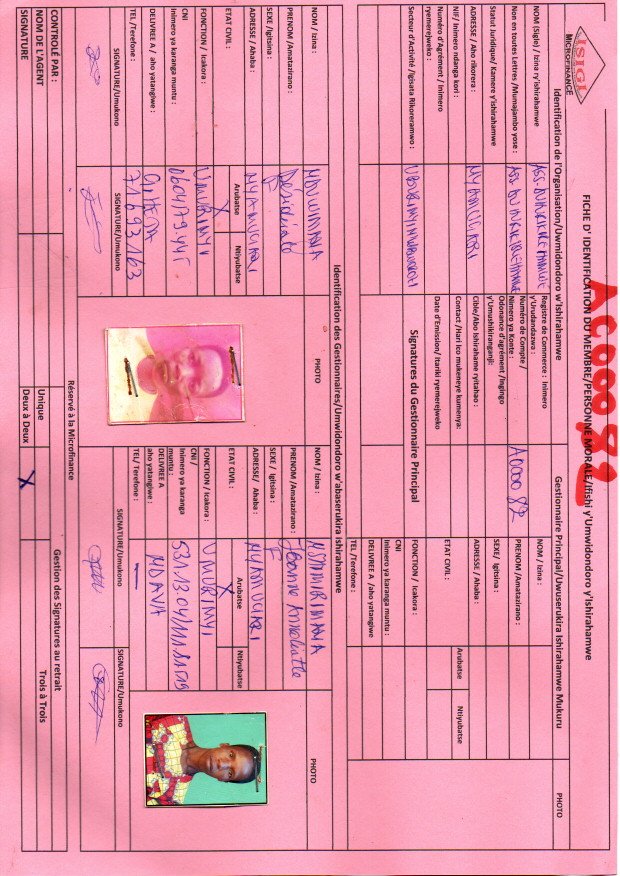 ISIGI
MICROFINANCE
A0000 82
FICHE D' IDENTIFICATION DU MEMBRE/PERSONNE MORALE/Ifishi y'Umwidondoro y'Ishirahamwe
Identification de l'Organisation/Uwmidondoro w'Ishirahamwe
Gestionnaire Principal/Uwuserukira Ishirahamwe Mukuru
PHOTO
NOM (Sigle) / Izina ry'ishirahamwe
Non en toutes Lettres /Mumajambo yose :
Statut Juridique/ Kamere y'ishirahamwe
ADRESSE / Aho rikorera : NYAMUGARI
NIF/ Inimero ndanga kori :
Numéro d'Agrément / Inimero
ryemerejweko :
Secteur d'Activité /Igisata Rikoreramwo :
Registre de Commerce : Inimero
y'Urudandazwa :
Numéro de Compte /
Nimero ya Konte : A0000 82
Odonance d'agrément /Ingingo
y'Umushikiranganji:
Cible/Abo ishirahame ryitaho :
Contact /Hari ico mukeneye kumenya:
Date d'Emission/ Itariki ryemerejweko
Signatures du Gestionnaire Principal
NOM / Izina :
PRENOM /Amatazirano :
SEXE/ Igitsina :
ADRESSE / Ahaba :
ETAT CIVIL :
Arubatse
Ntiyubatse
FONCTION / Icakora :
CNI
Inimero ya karanga muntu :
DELIVREE A / aho yatangiwe
TEL /Terefone :
Identification des Gestionnaires/Umwidondoro w'abaserukira ishirahamwe
NOM / Izina : NDUWIMANA
PRENOM /Amatazirano : Désidérate
SEXE /Igitsina : F
ADRESSE / Ahaba : NYAMUGARI
ETAT CIVIL :
Arubatse
Ntiyubatse
X
FONCTION / Icakora : UMURIMYI
CNI
Inimero ya karanga muntu :
DELIVREE A / aho yatangiwe : GIHETA
TEL /Terefone : 71693163
SIGNATURE/Umukono
SIGNATURE/Umukono
PHOTO
NOM / Izina :
PRENOM /Amatazirano : Jeanne
SEXE / Igitsina : F
ADRESSE/ Ahaba : NYAMUGARI
ETAT CIVIL :
Arubatse
Ntiyubatse
X
FONCTION / Icakora : UMURIMYI
CNI /
Inimero ya karanga
muntu :
DELIVREE A
aho yatangiwe : NDAVA
TEL/ Terefone :
SIGNATURE/Umukono
SIGNATURE/Umukono
PHOTO
Réservé à la Microfinance
CONTROLÉ PAR :
NOM DE L'AGENT
SIGNATURE
Gestion des Signatures au retrait
Unique
Deux à Deux
X
Trois à Trois